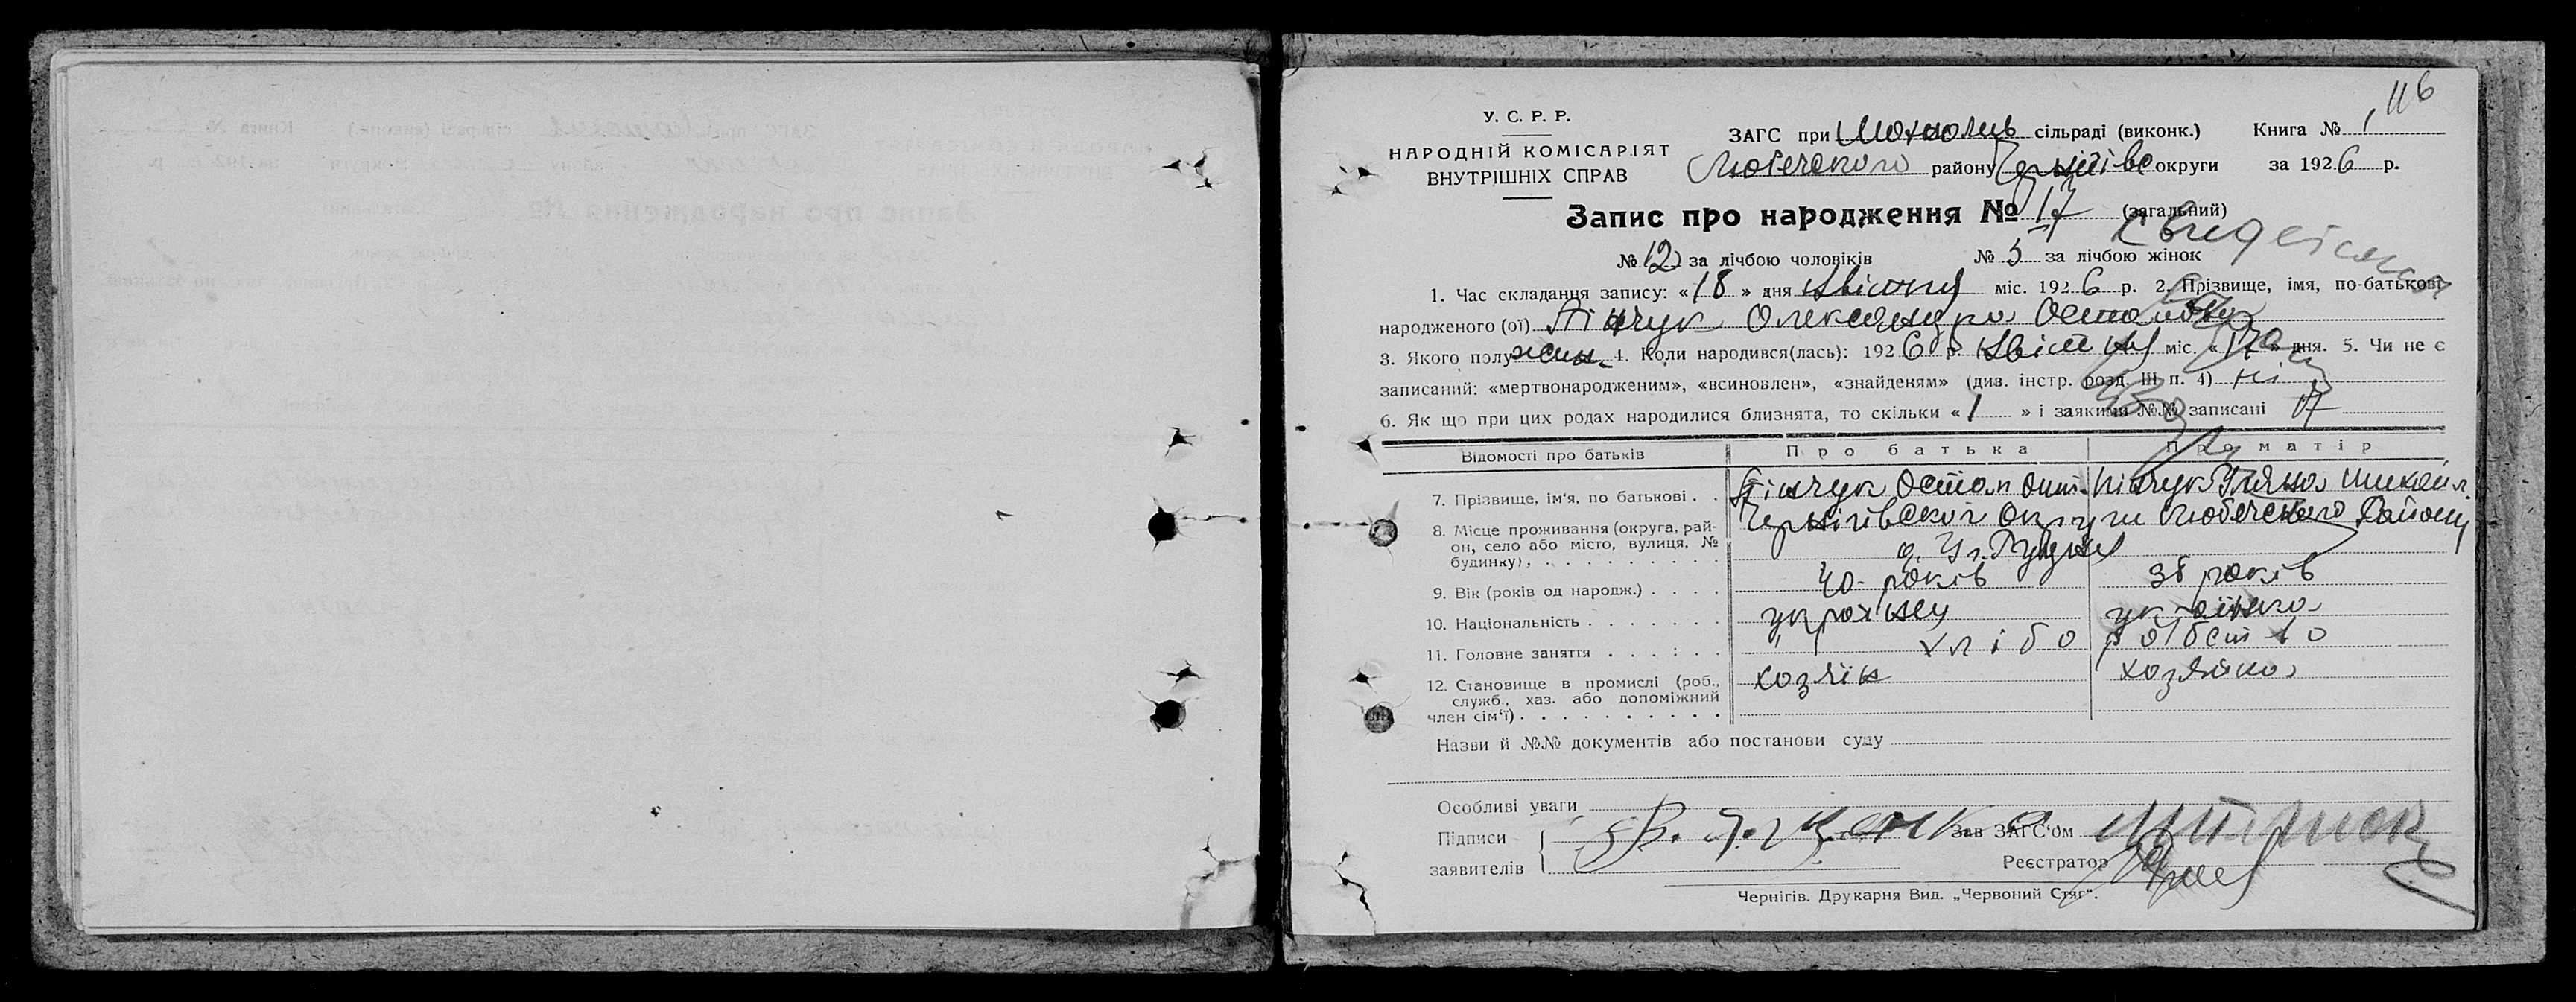 116
У. С. Р. Р.
НАРОДНІЙ КОМІСАРІЯТ
ВНУТРІШНІХ СПРАВ
ЗАГС при сільраді (виконк.) Книга № 1
Любечского району Чернігівс округи за 1926 р.
Запис про народження № 17 (загальний)
№ 12 за лічбою чоловіків № 5 за лічбою жінок
1. Час складання запису: «18» дня квітня міс. 1926 р. 2. Прізвище, імя, по-батькові
народженого (ої) Пінчук Олександра Остапова
3. Якого полу жін. 4. Коли народився(лась): 1926 р. квітня міс. «17» дня. 5. Чи не є
записаний: «мертвонародженим», «всиновлен», «знайденям» (див. інстр. розд. III п. 4) ні
6. Як що при цих родах народилися близнята, то скільки «1» і за якими №№ записані 17
Відомості про батьків Про батька Про матір
7. Прізвище, ім'я, по батькові . . Пінчук Остап Пінчук Уляна
8. Місце проживання (округа, рай-
он, село або місто, вулиця, №
будинку) . . . . . . . . . .
Чернігівскої округи Любечского Району
9. Вік (років од народж.) . . . . 40 років 38 років
10. Національність . . . . . . . українец українка
11. Головне заняття . . . : . . хлібо робство
12. Становище в промислі (роб.,
служб., хаз. або допоміжний
член сім'ї) . . . . . . . . . .
хозяін хозяйка
Назви й №№ документів або постанови суду
Особливі уваги
Підписи
заявителів
Зав ЗАГС'ом
Реєстратор
Чернігів. Друкарня Вид. „Червоний Стяг".